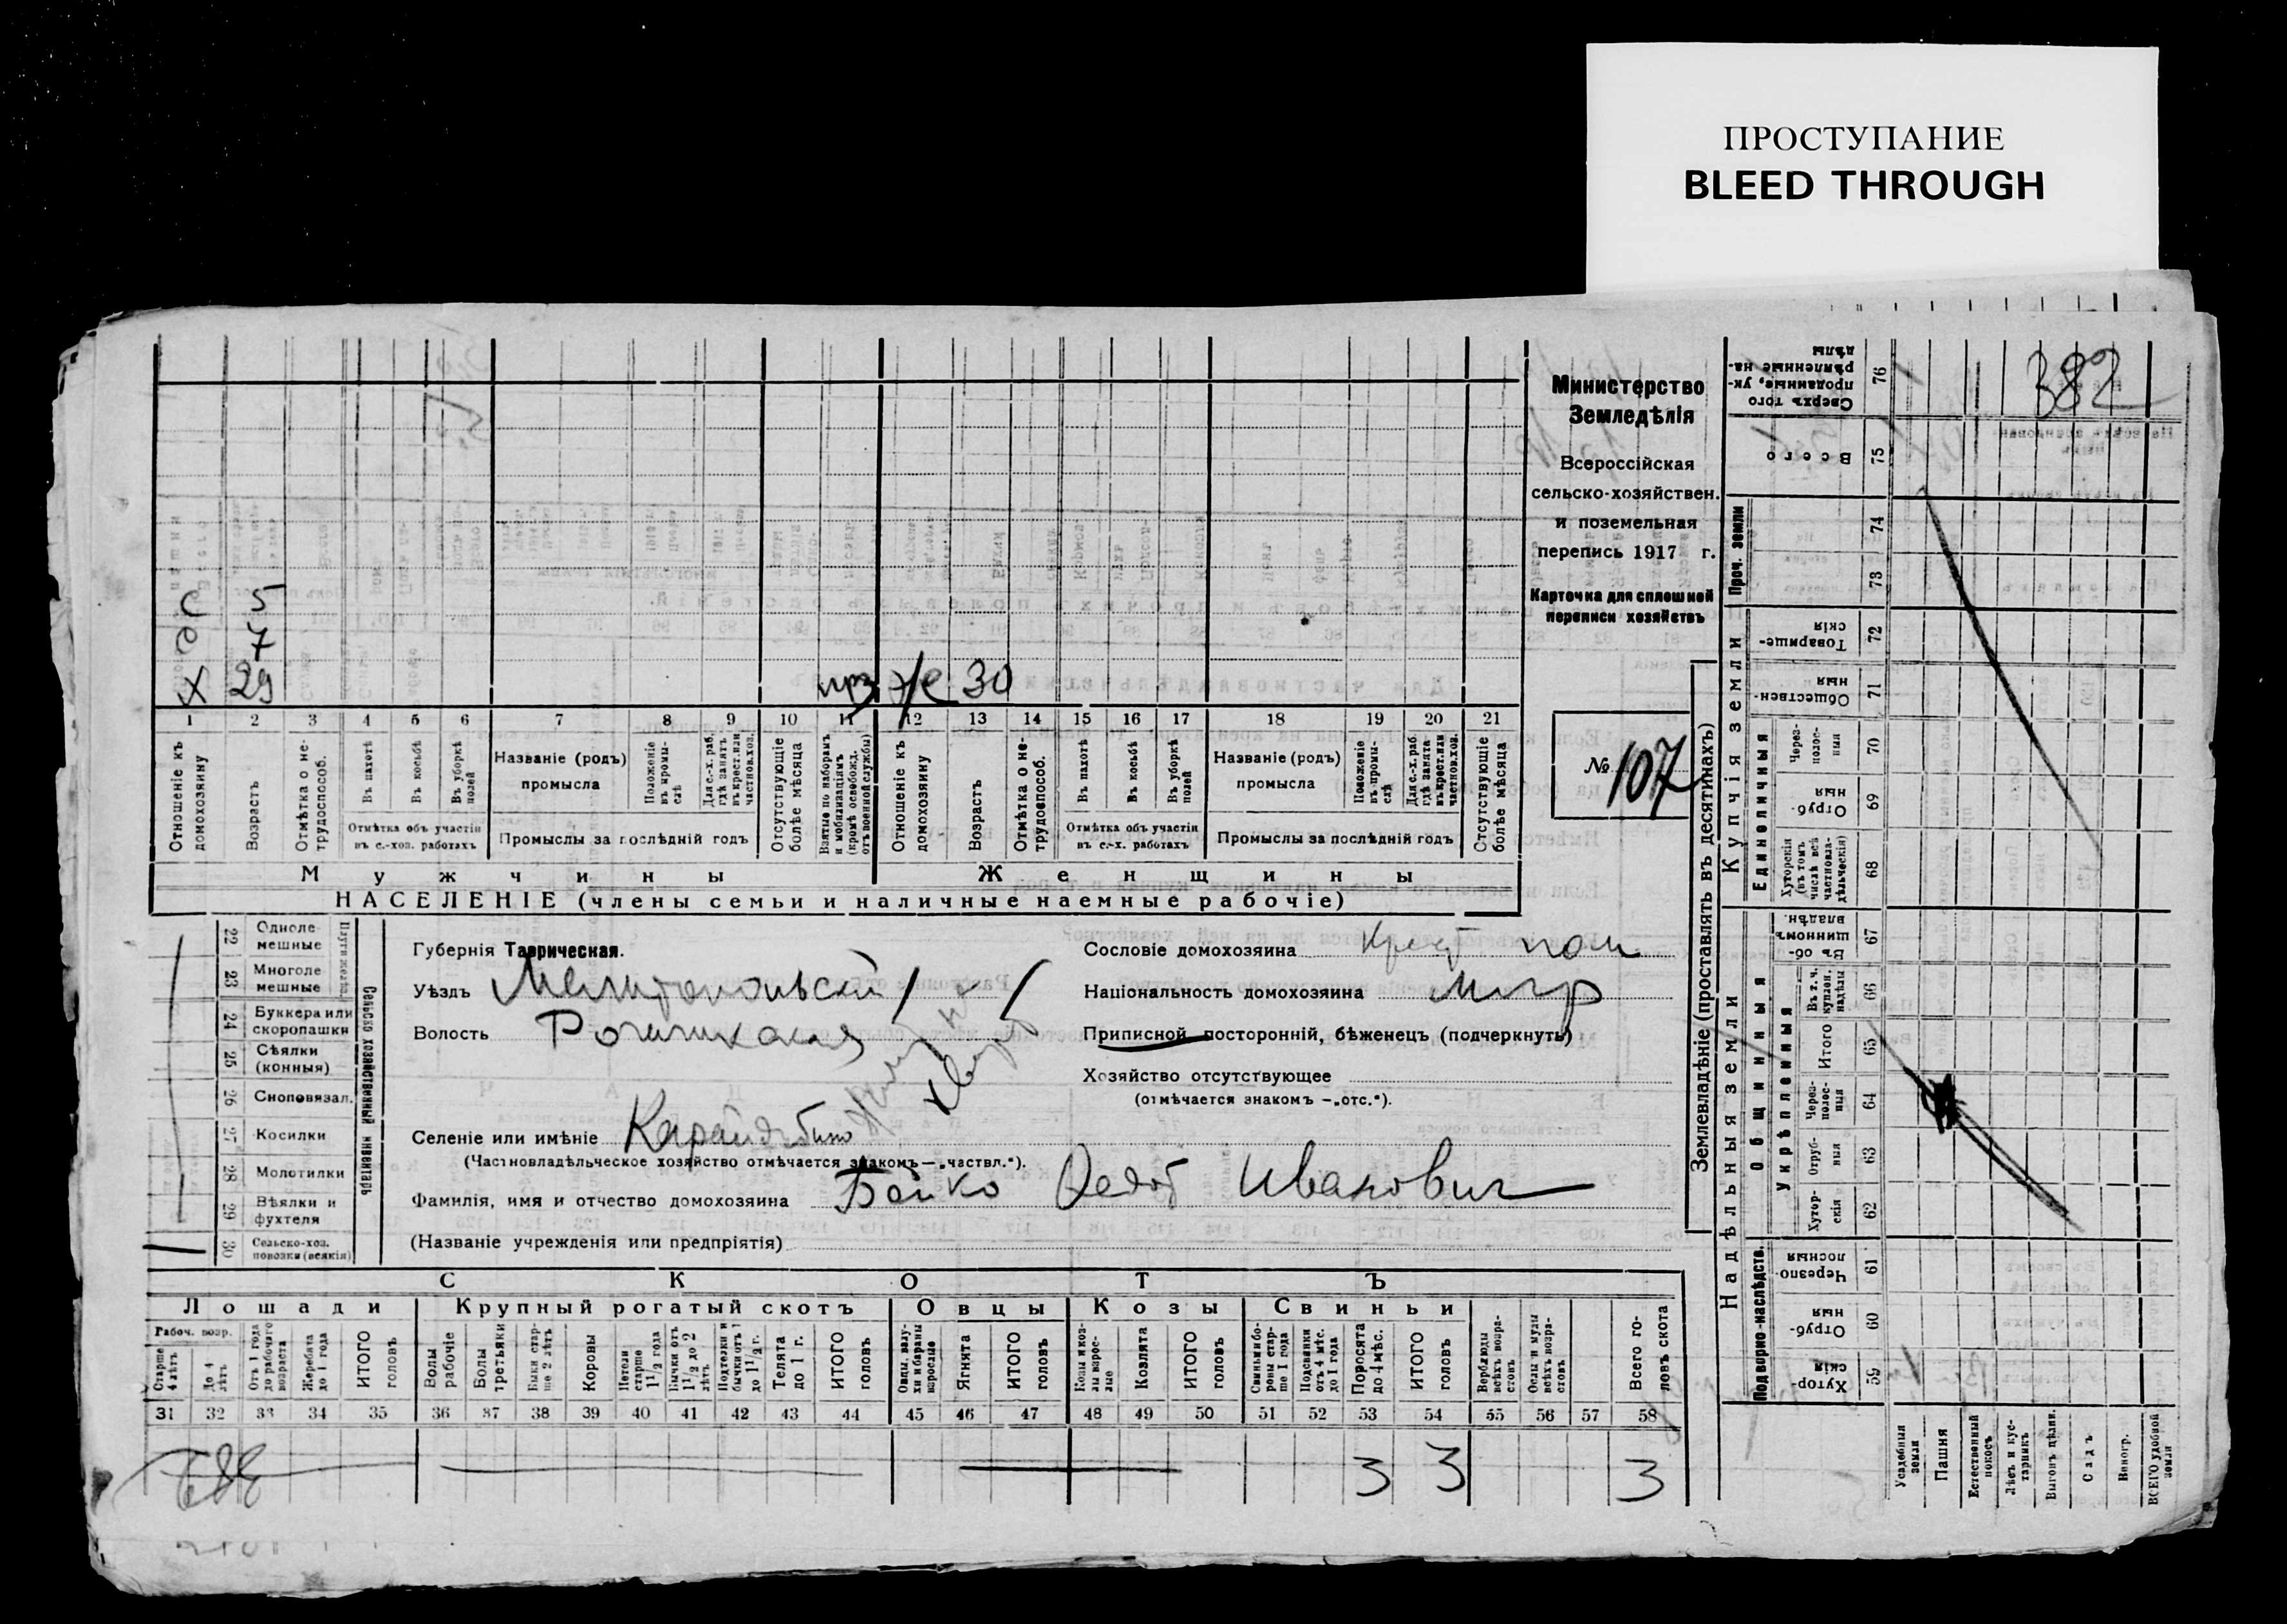 ПРОСТУПАНИЕ
BLEED THROUGH
Министерство
Земледѣлія
Всероссійская
сельско-хозяйствен.
и поземельная
перепись 1917 г.
Карточка для сплошной
переписи хозяйствъ
№ 107
382
С 5
С 7
Х 29
прз Ж 30
1 2 3 4 5 6 7 8 9 10 11 12 13 14 15 16 17 18 19 20 21
Отношеніе къ домохозяину
Возрастъ
Отмѣтка о не-трудоспособ.
Въ пахотѣ
Въ косьбѣ
Въ уборкѣ полей
Отмѣтка объ участіи въ с.-хоз. работахъ
Названіе (родъ) промысла
Положеніе въ промы-слѣ
Для с.-х. раб. гдѣ занятъ въ крест. или частнов. хоз.
Промыслы за послѣдній годъ
Отсутствующіе болѣе мѣсяца
Взятые по наборамъ и мобилизаціямъ (кромѣ освобожд. отъ военной службы)
Отношеніе къ домохозяину
Возрастъ
Отмѣтка о не-трудоспособ.
Въ пахотѣ
Въ косьбѣ
Въ уборкѣ полей
Отмѣтка объ участіи въ с.-х. работахъ
Названіе (родъ) промысла
Положеніе въ промы-слѣ
Для с.-х. раб. гдѣ занята въ крест. или частнов. хоз.
Промыслы за послѣдній годъ
Отсутствующіе болѣе мѣсяца
Мужчины Женщины
НАСЕЛЕНІЕ (члены семьи и наличные наемные рабочіе)
Сельско хозяйственный инвентарь
22 Одноле-мешные
23 Многоле-мешные
24 Буккера или скоропашки
25 Сѣялки (конныя)
26 Сноповязал.
27 Косилки
28 Молотилки
29 Вѣялки и фухтеля
30 Сельско-хоз. повозки (всякія)
Губернія Таврическая.
Уѣздъ Мелитопольскій
Волость
Селеніе или имѣніе
(Частновладѣльческое хозяйство отмѣчается знакомъ—„частвл.“).
Фамилія, имя и отчество домохозяина Бойко Федот Иванович
(Названіе учрежденія или предпріятія)
Сословіе домохозяина
Національность домохозяина
Приписной посторонній, бѣженецъ (подчеркнуть)
Хозяйство отсутствующее
(отмѣчается знакомъ —„отс.“).
СКОТЪ
Лошади Крупный рогатый скотъ Овцы Козы Свиньи
Рабоч. возр.
Старше 4 лѣтъ
До 4 лѣтъ
Отъ 1 года до рабочаго возраста
Жеребята до 1 года
ИТОГО головъ
Волы рабочіе
Волы третьяки
Быки стар-ше 2 лѣтъ
Коровы
Нетели старше 1 1/2 года
Бычки отъ 1 1/2 до 2 лѣтъ
Подтелки и бычки отъ 1 до 1 1/2 г.
Телята до 1 г.
ИТОГО головъ
Овцы, валу-хи и бараны взрослые
Ягнята
ИТОГО головъ
Козы и коз-лы взрос-лые
Козлята
ИТОГО головъ
Свиньи и бо-ровы стар-ше 1 года
Подсвинки отъ 4 мѣс. до 1 года
Поросята до 4 мѣс.
ИТОГО головъ
Верблюды всѣхъ возра-стовъ
Ослы и мулы всѣхъ возра-стовъ
Всего го-ловъ скота
31 32 33 34 35 36 37 38 39 40 41 42 43 44 45 46 47 48 49 50 51 52 53 54 55 56 57 58
3 3 3
Землевладѣніе (проставлять въ десятинахъ)
Надѣльныя земли Купчія земли Проч. земли
Подворно-наслѣдств.
Общинныя
Укрѣпленныя
Единоличныя
Сверхъ того проданные, ук-рѣпленные на-дѣлы 76
Всего 75
74
73
Товарище-скія 72
Обществен-ныя 71
Через-полос-ныя 70
Отруб-ныя 69
Хуторскія (въ томъ числѣ всѣ частновла-дѣльческія) 68
Въ об-щинномъ владѣн. 67
Въ т. ч. куплен. надѣлы 66
Итого 65
Через-полос-ныя 64
Отруб-ныя 63
Хутор-скія 62
Черезпо-лосныя 61
Отруб-ныя 60
Хутор-скія 59
Усадебныя земли
Пашня
Естественный покосъ
Лѣсъ и кус-тарникъ
Выгонъ дѣлян.
Садъ
Виногр.
ВСЕГО удобной земли